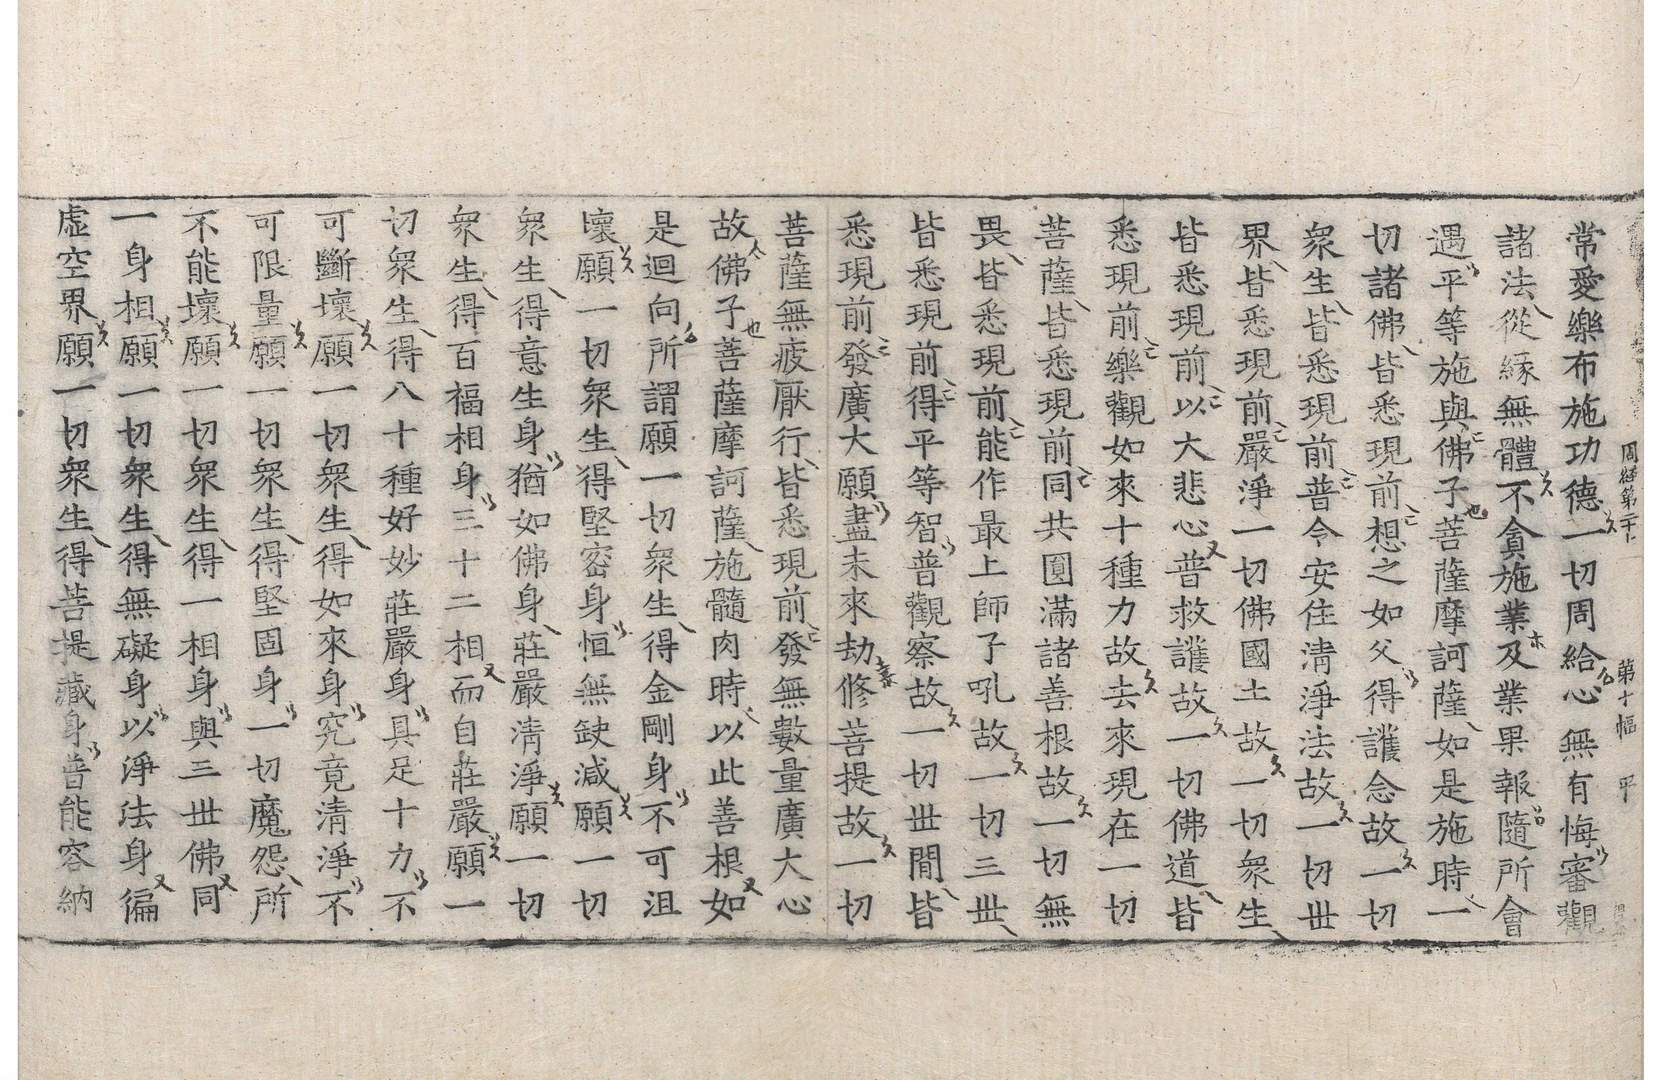 周經第二十一　第十幅　平
常愛樂布施功德一切周給心無有悔審觀
諸法從緣無體不貪施業及業果報隨所會
遇平等施與佛子菩薩摩訶薩如是施時一
切諸佛皆悉現前想之如父得護念故一切
衆生皆悉現前普令安住清淨法故一切世
界皆悉現前嚴淨一切佛國土故一切衆生
皆悉現前以大悲心普救護故一切佛道皆
悉現前樂觀如來十種力故去來現在一切
菩薩皆悉現前同共圓滿諸善根故一切無
畏皆悉現前能作最上師子吼故一切三世
皆悉現前得平等智普觀察故一切世間皆
悉現前發廣大願盡未來劫修菩提故一切
菩薩無疲厭行皆悉現前發無數量廣大心
故佛子菩薩摩訶薩施髓肉時以此善根如
是迴向所謂願一切衆生得金剛身不可沮
壞願一切衆生得堅密身恒無缺減願一切
衆生得意生身猶如佛身莊嚴清淨願一切
衆生得百福相身三十二相而自莊嚴願一
切衆生得八十種好妙莊嚴身具足十力不
可斷壞願一切衆生得如來身究竟清淨不
可限量願一切衆生得堅固身一切魔怨所
不能壞願一切衆生得一相身與三世佛同
一身相願一切衆生得無礙身以淨法身徧
虛空界願一切衆生得菩提藏身普能容納